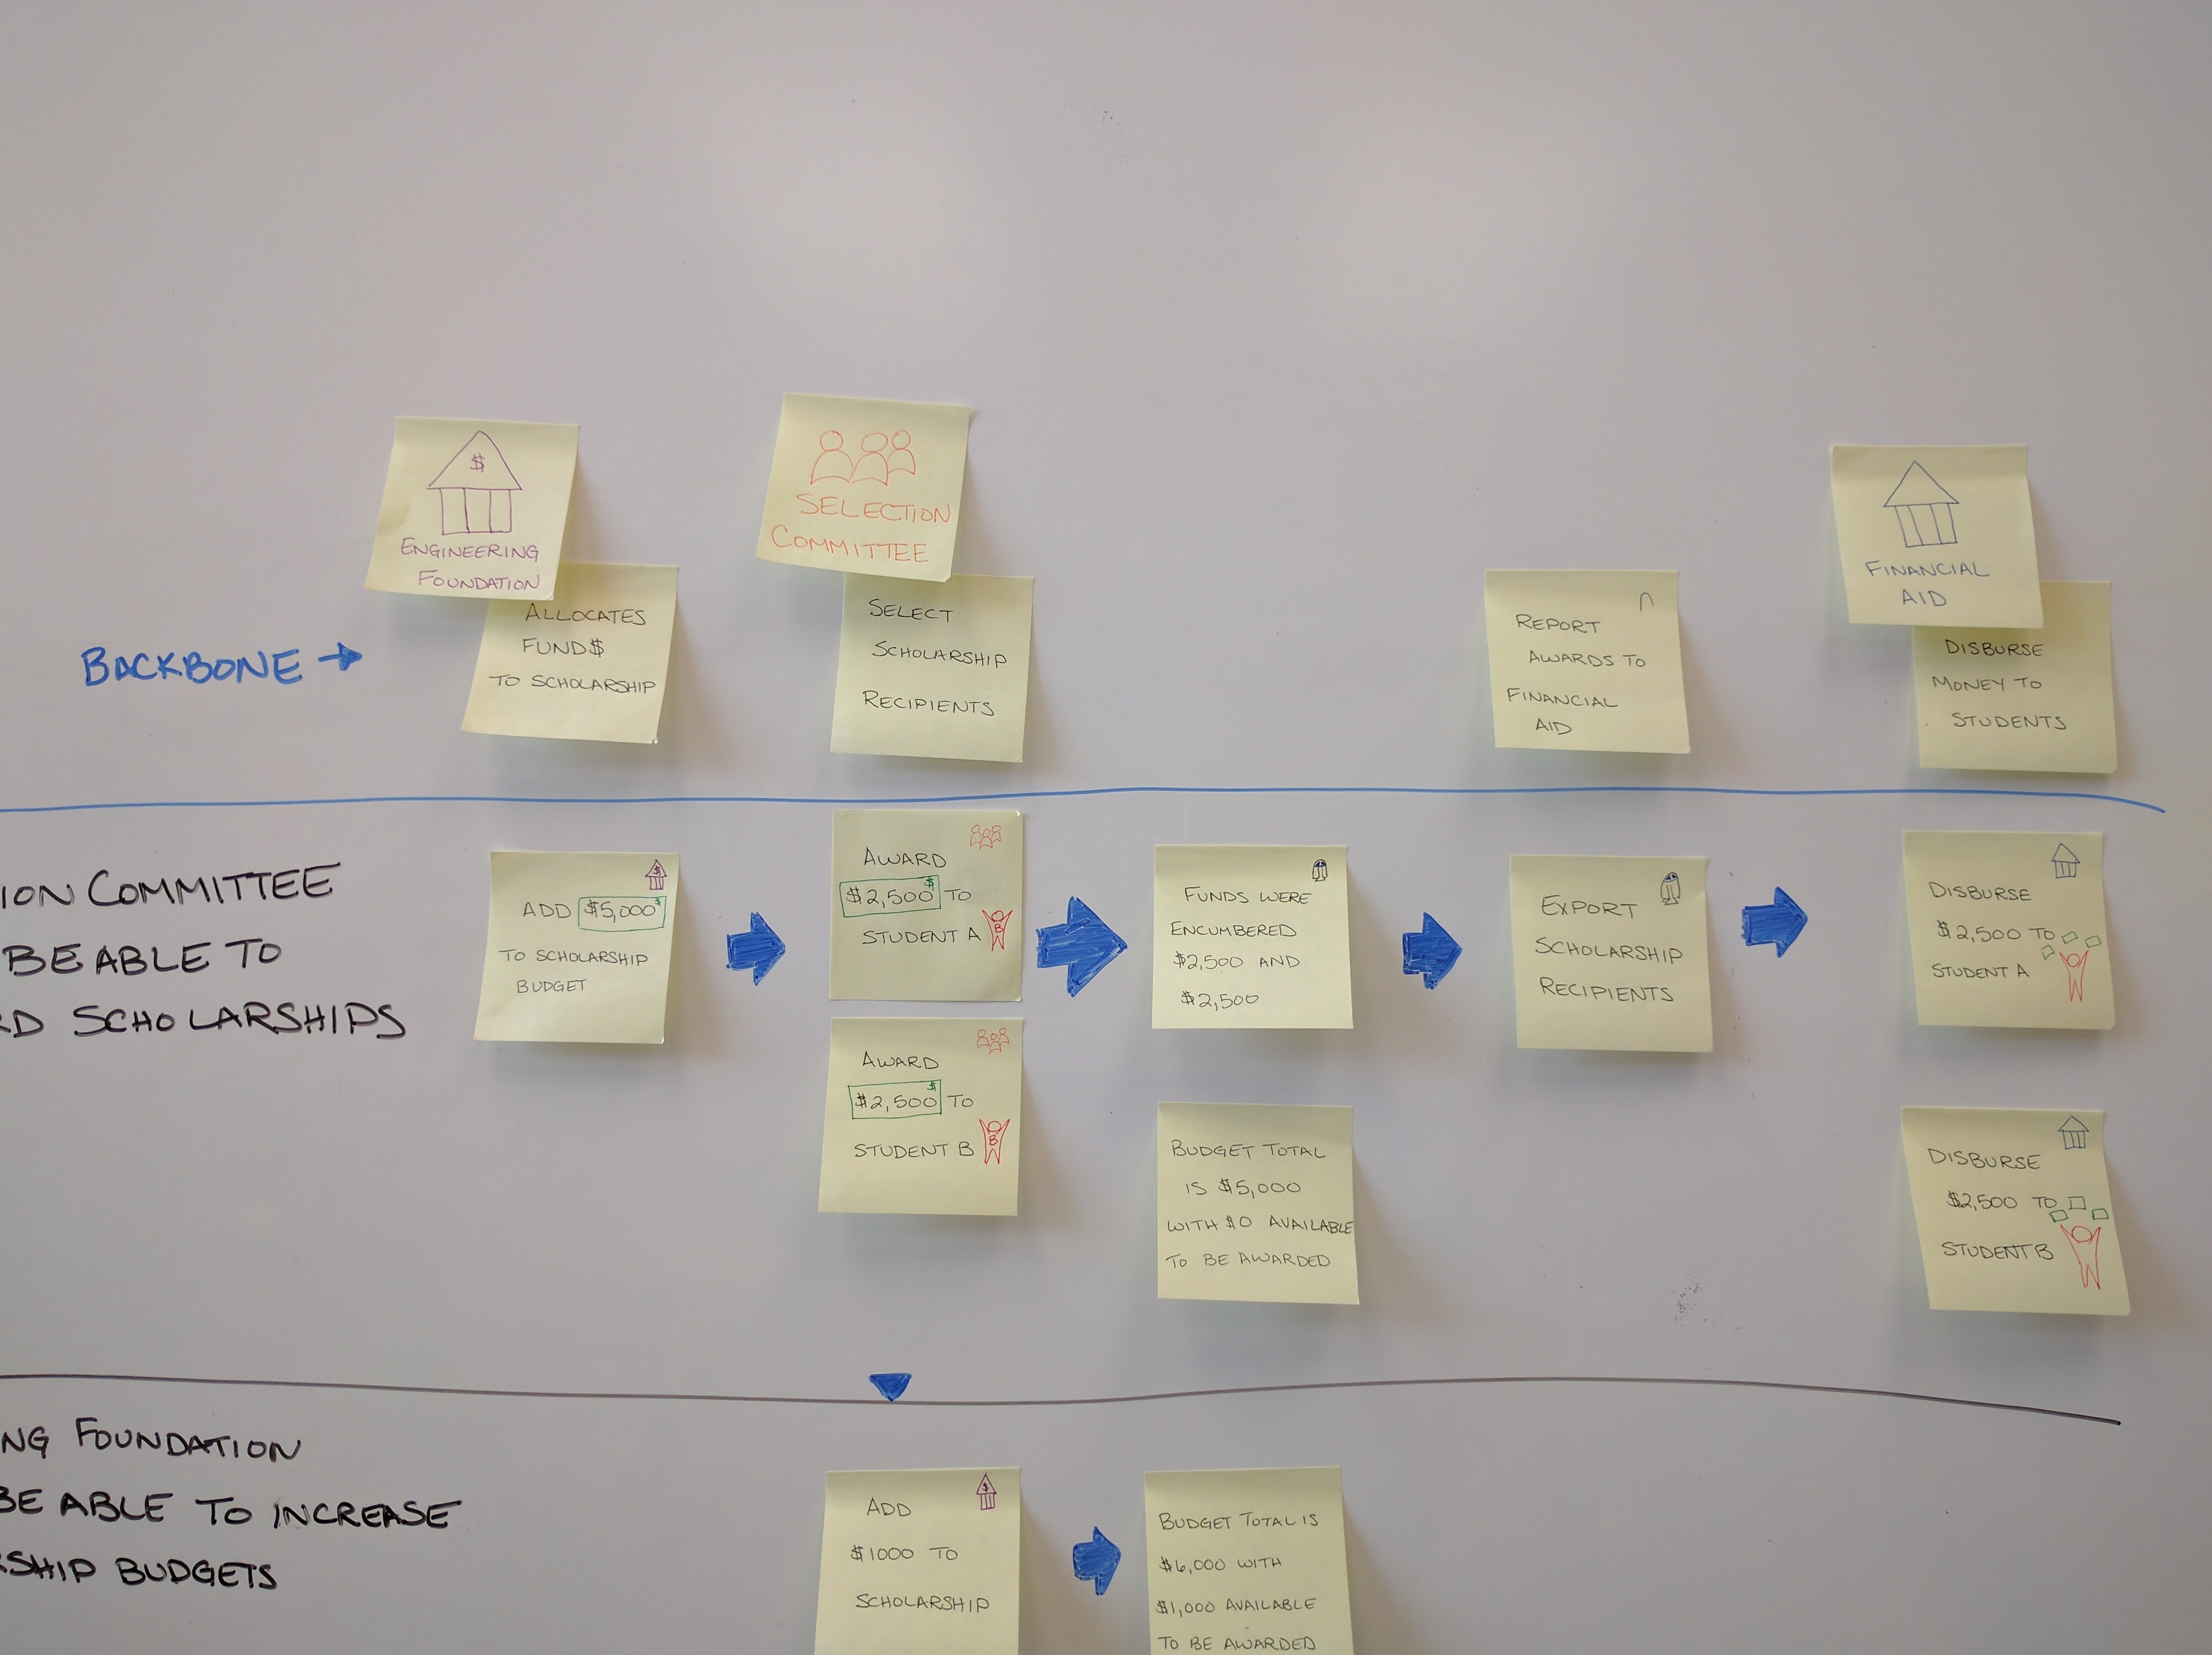 $
ENGINEERING
FOUNDATION
ALLOCATES
FUND$
TO SCHOLARSHIP
SELECTION
COMMITTEE
SELECT
SCHOLARSHIP
RECIPIENTS
REPORT
AWARDS TO
FINANCIAL
AID
FINANCIAL
AID
DISBURSE
MONEY TO
STUDENTS
BACKBONE →
ION COMMITTEE
BE ABLE TO
RD SCHOLARSHIPS
$
ADD $5,000 $
TO SCHOLARSHIP
BUDGET
AWARD
$2,500 $ TO
STUDENT A B
AWARD
$2,500 $ TO
STUDENT B B
FUNDS WERE
ENCUMBERED
$2,500 AND
$2,500
BUDGET TOTAL
IS $5,000
WITH $0 AVAILABLE
TO BE AWARDED
EXPORT
SCHOLARSHIP
RECIPIENTS
DISBURSE
$2,500 TO
STUDENT A
DISBURSE
$2,500 TO
STUDENT B
NG FOUNDATION
BE ABLE TO INCREASE
RSHIP BUDGETS
$
ADD
$1000 TO
SCHOLARSHIP
BUDGET TOTAL IS
$6,000 WITH
$1,000 AVAILABLE
TO BE AWARDED